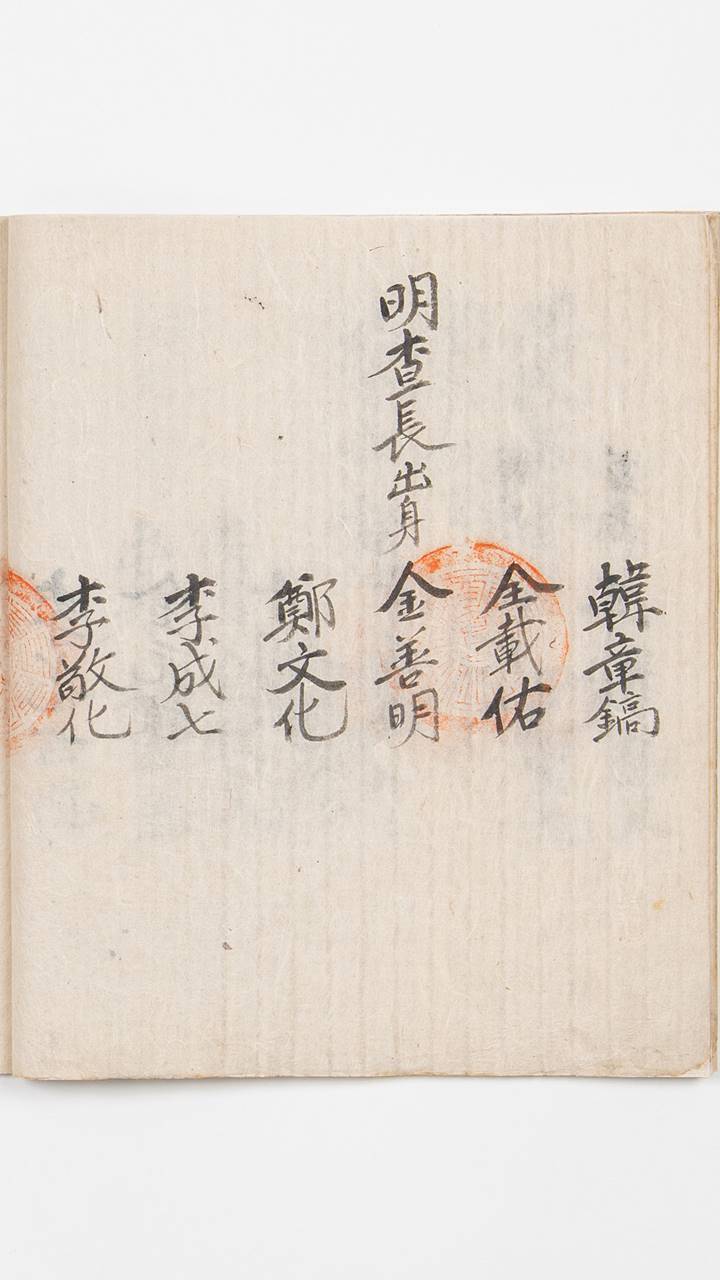 韓章鎬
全載佑
明査長出身 金善明
鄭文化
李成七
李敬化